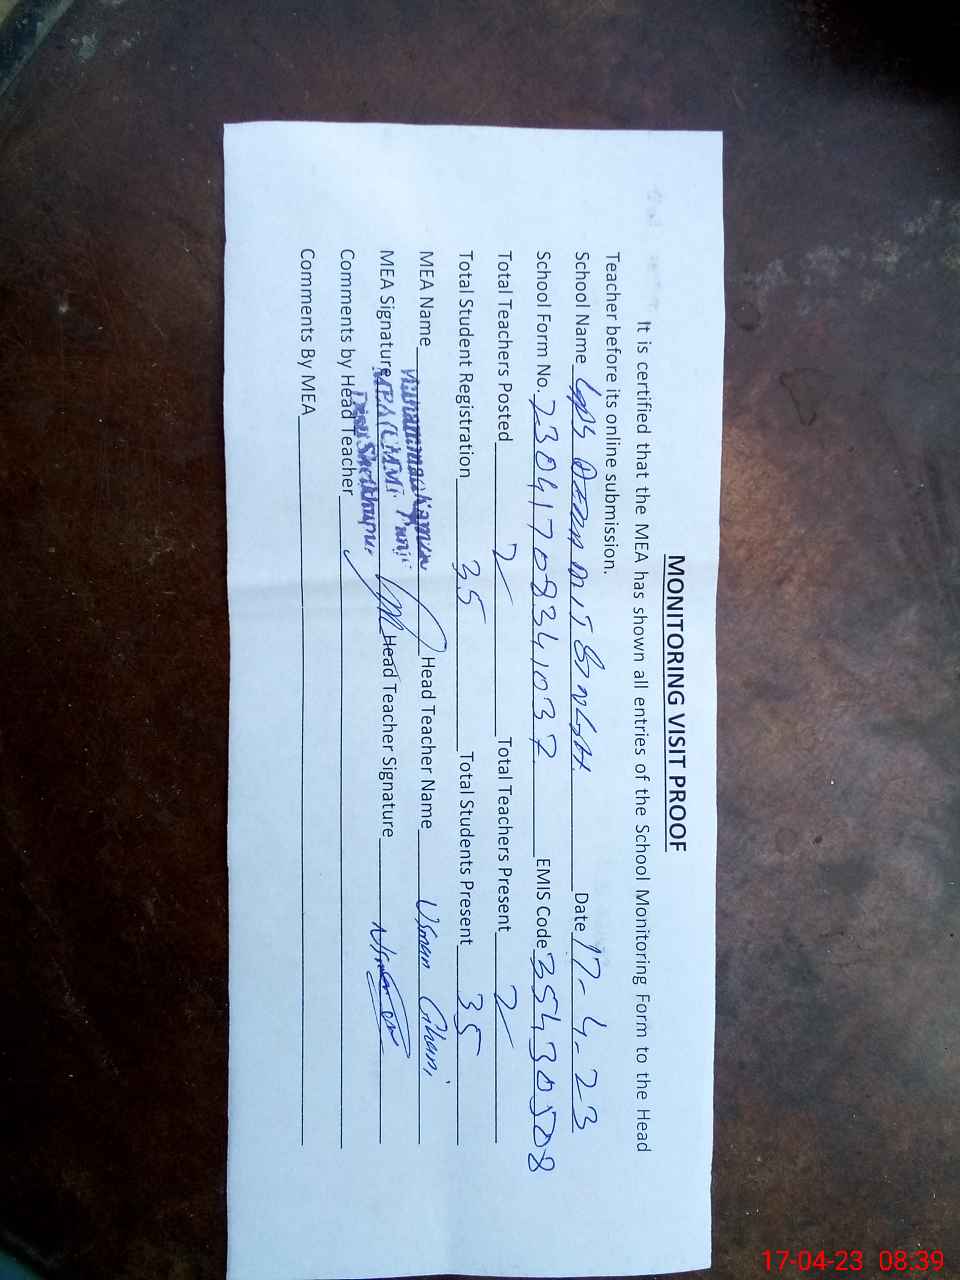 MONITORING VISIT PROOF
It is certified that the MEA has shown all entries of the School Monitoring Form to the Head
Teacher before its online submission.
School Name Date 17-4-23
School Form No. 23041708341037 EMIS Code 35430508
Total Teachers Posted 2 Total Teachers Present 2
Total Student Registration 35 Total Students Present 35
MEA Name Muhammad Head Teacher Name Usman Ghani
MEA Signature MEA (CMMF Head Teacher Signature
Comments by Head Teacher Distt Sheikhupura
Comments By MEA
17-04-23 08:39